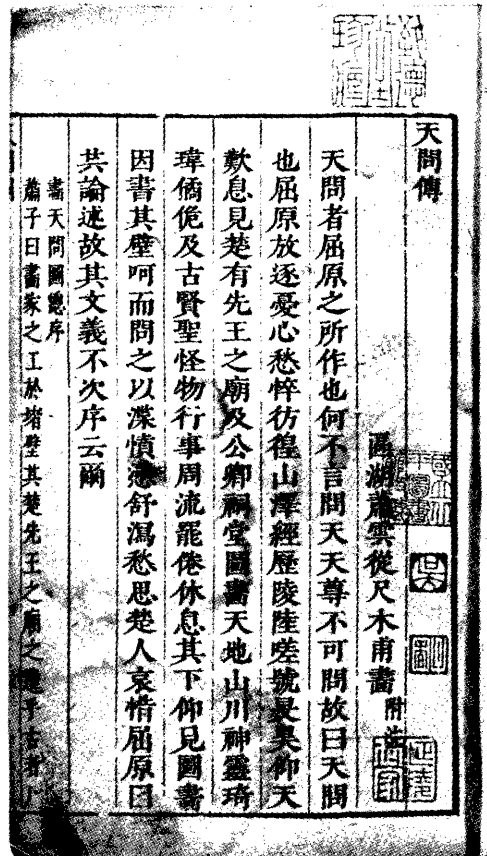 天問傳
區湖蕭雲從尺木甫畫 附注
天問者屈原之所作也何不言問天天尊不可問故曰天問
也屈原放逐憂心愁悴彷徨山澤經歷陵陸嗟號旻昊仰天
歎息見楚有先王之廟及公卿祠堂圖畫天地山川神靈琦
瑋僪佹及古賢聖怪物行事周流罷倦休息其下仰見圖畫
因書其壁呵而問之以渫憤懣舒瀉愁思楚人哀惜屈原因
共論述故其文義不次序云爾
畫天問圖總序
蕭子曰畫家之工於堵壁其楚先王之廟之遺乎古者